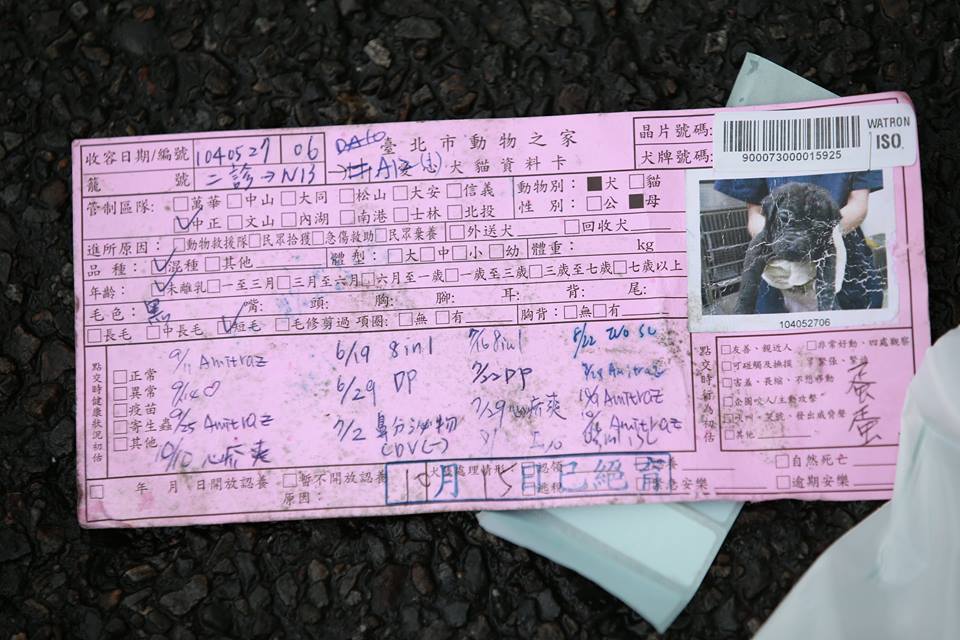 臺北市動物之家
犬貓資料卡
收容日期/編號 1040527 06
籠號 二診→N13
晶片號碼:
WATRON
ISO
900073000015925
犬牌號碼:
管制區隊: □萬華 □中山 □大同 □松山 □大安 □信義
☑中正 □文山 □內湖 □南港 □士林 □北投
動物別: ■犬 □貓
性別: □公 ■母
進所原因: □動物救援隊 □民眾拾獲 □急傷救助 □民眾棄養 □外送犬 □回收犬
品種: ☑混種 □其他 體型: □大 □中 □小 □幼 體重: kg
年齡: ☑未離乳 □一至三月 □三月至六月 □六月至一歲 □一歲至三歲 □三歲至七歲 □七歲以上
毛色: 黑 嘴: 頭: 胸: 腳: 耳: 背: 尾:
□長毛 □中長毛 ☑短毛 □毛修剪過 項圈: □無 □有 胸背: □無 □有
10452706
點交時健康狀況初估
□正常
□異常
□疫苗
□寄生蟲
□其他
9/11 Amitraz
9/25 Amitraz
10/10 心疥爽
6/19 8in1
6/29 DP
7/2 鼻分泌物
CDV(-)
7/16 8in1
7/22 DP
7/29 心疥爽
Amitraz
Amitraz
點交時行為初估
□友善、親近人 □非常好動、四處觀察
□可碰觸及撫摸 □緊張、緊繃
□害羞、畏縮、不想移動
□企圖咬人/主動攻擊
□其他
年 月 日開放認養 □暫不開放認養
原因:
10月15日已絕育
□自然死亡
□逾期安樂